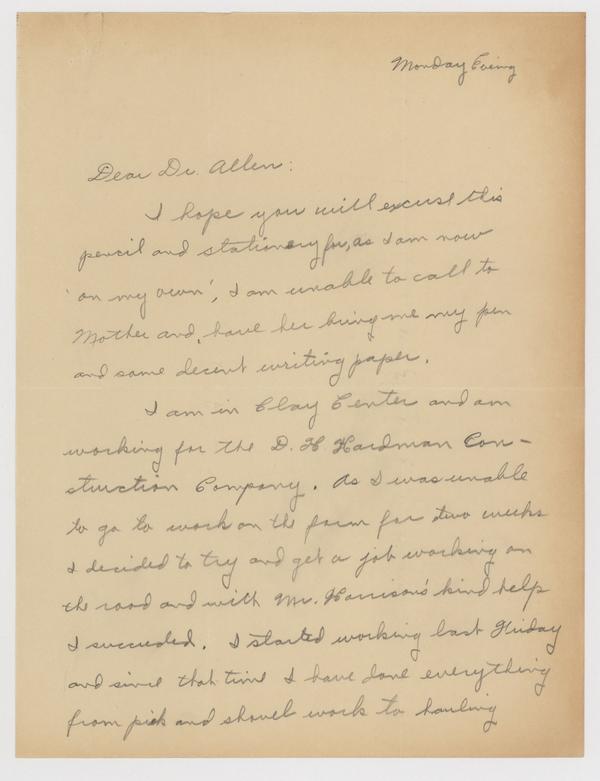 Monday Evening
Dear Dr. Allen:
I hope you will excuse this
pencil and stationery for, as I am now
'on my own', I am unable to call to
Mother and, have her bring me my pen
and some decent writing paper.
I am in Clay Center and am
working for the D. H. Hardman Con-
struction Company. As I was unable
to go to work on the farm for two weeks
I decided to try and get a job working on
the road and with Mr. Harrison's kind help
I succeeded. I started working last Friday
and since that time I have done everything
from pick and shovel work to hauling